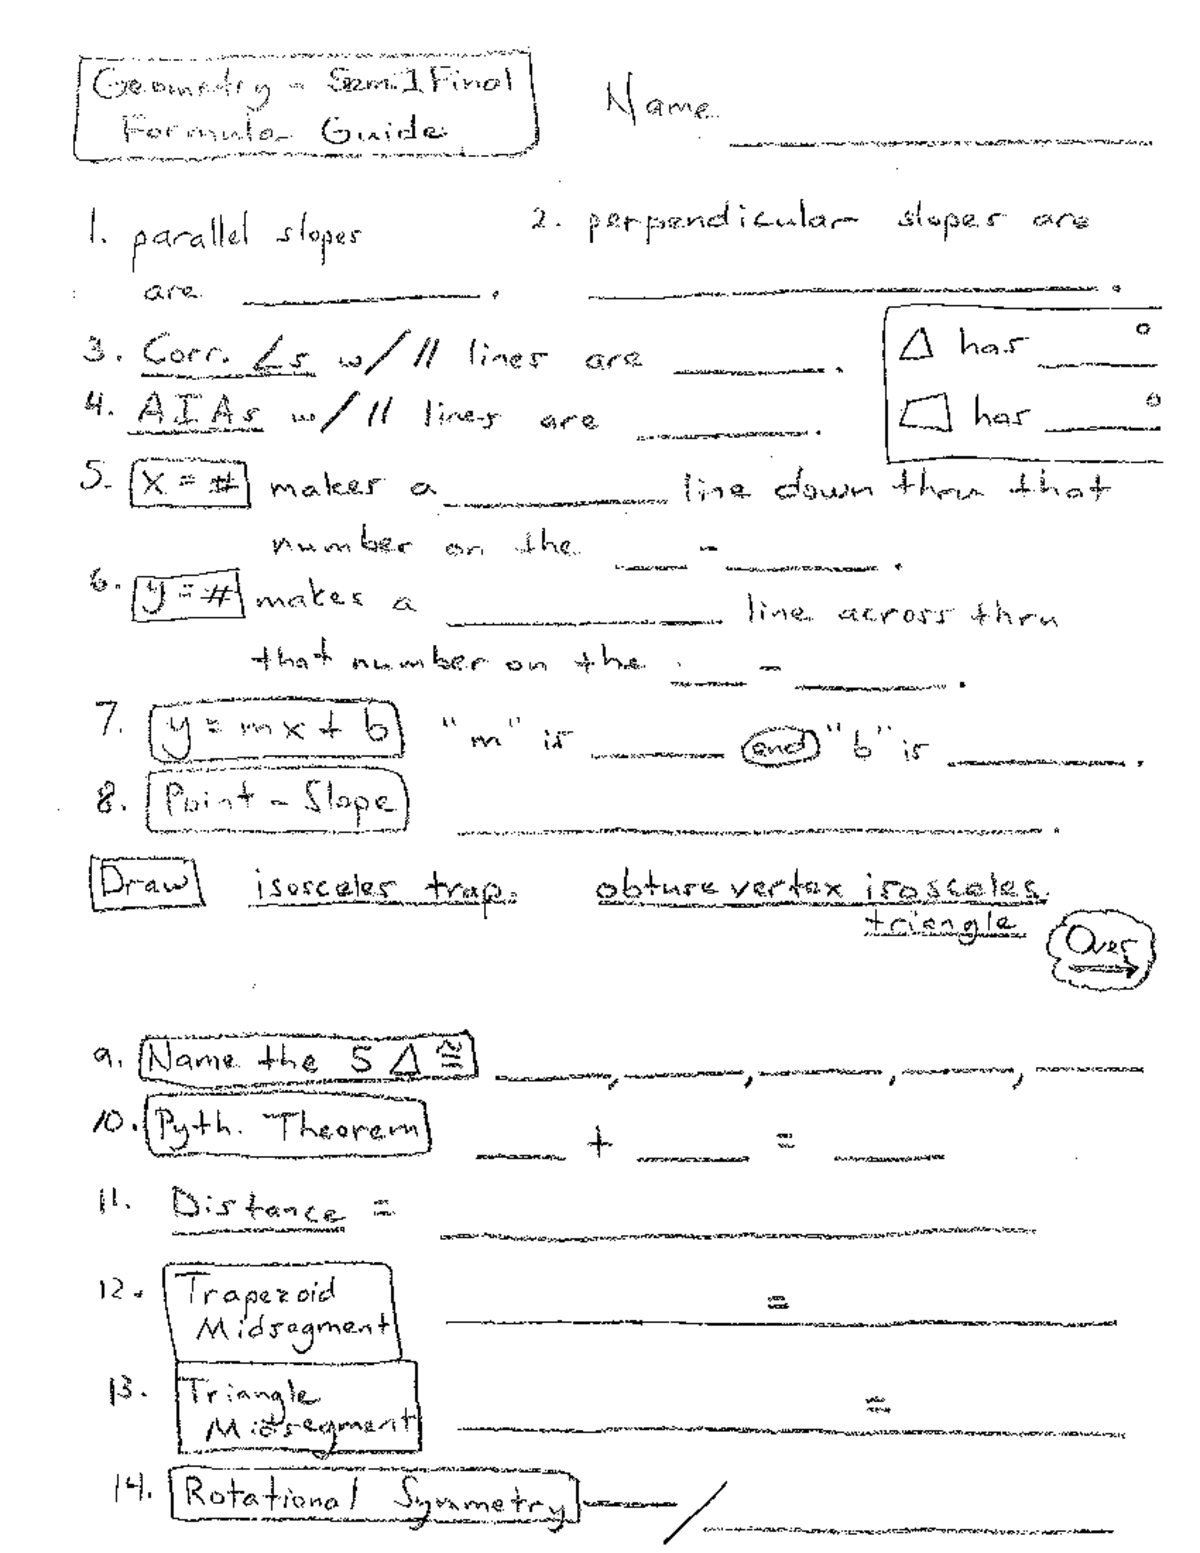 Geometry - Sem 1 Final
Formula Guide
Name
1. parallel slopes
are ________.
2. perpendicular slopes are
________.
3. Corr. ∠s w/ // lines are ________.
△ has ________°
4. AIAs w/ // lines are ________.
▱ has ________°
5. x = # makes a ________ line down thru that
number on the ____ - ________.
6. y = # makes a ________ line across thru
that number on the ____ - ________.
7. y = mx + b "m" is ________ and "b" is ________.
8. Point - Slope ________.
Draw isosceles trap. obtuse vertex isosceles
triangle
Over →
9. Name the 5 △ ≅ ____, ____, ____, ____, ____
10. Pyth. Theorem ____ + ____ = ____
11. Distance = ________
12. Trapezoid
Midsegment ________ = ________
13. Triangle
Midsegment ________ = ________
14. Rotational Symmetry ____ / ________